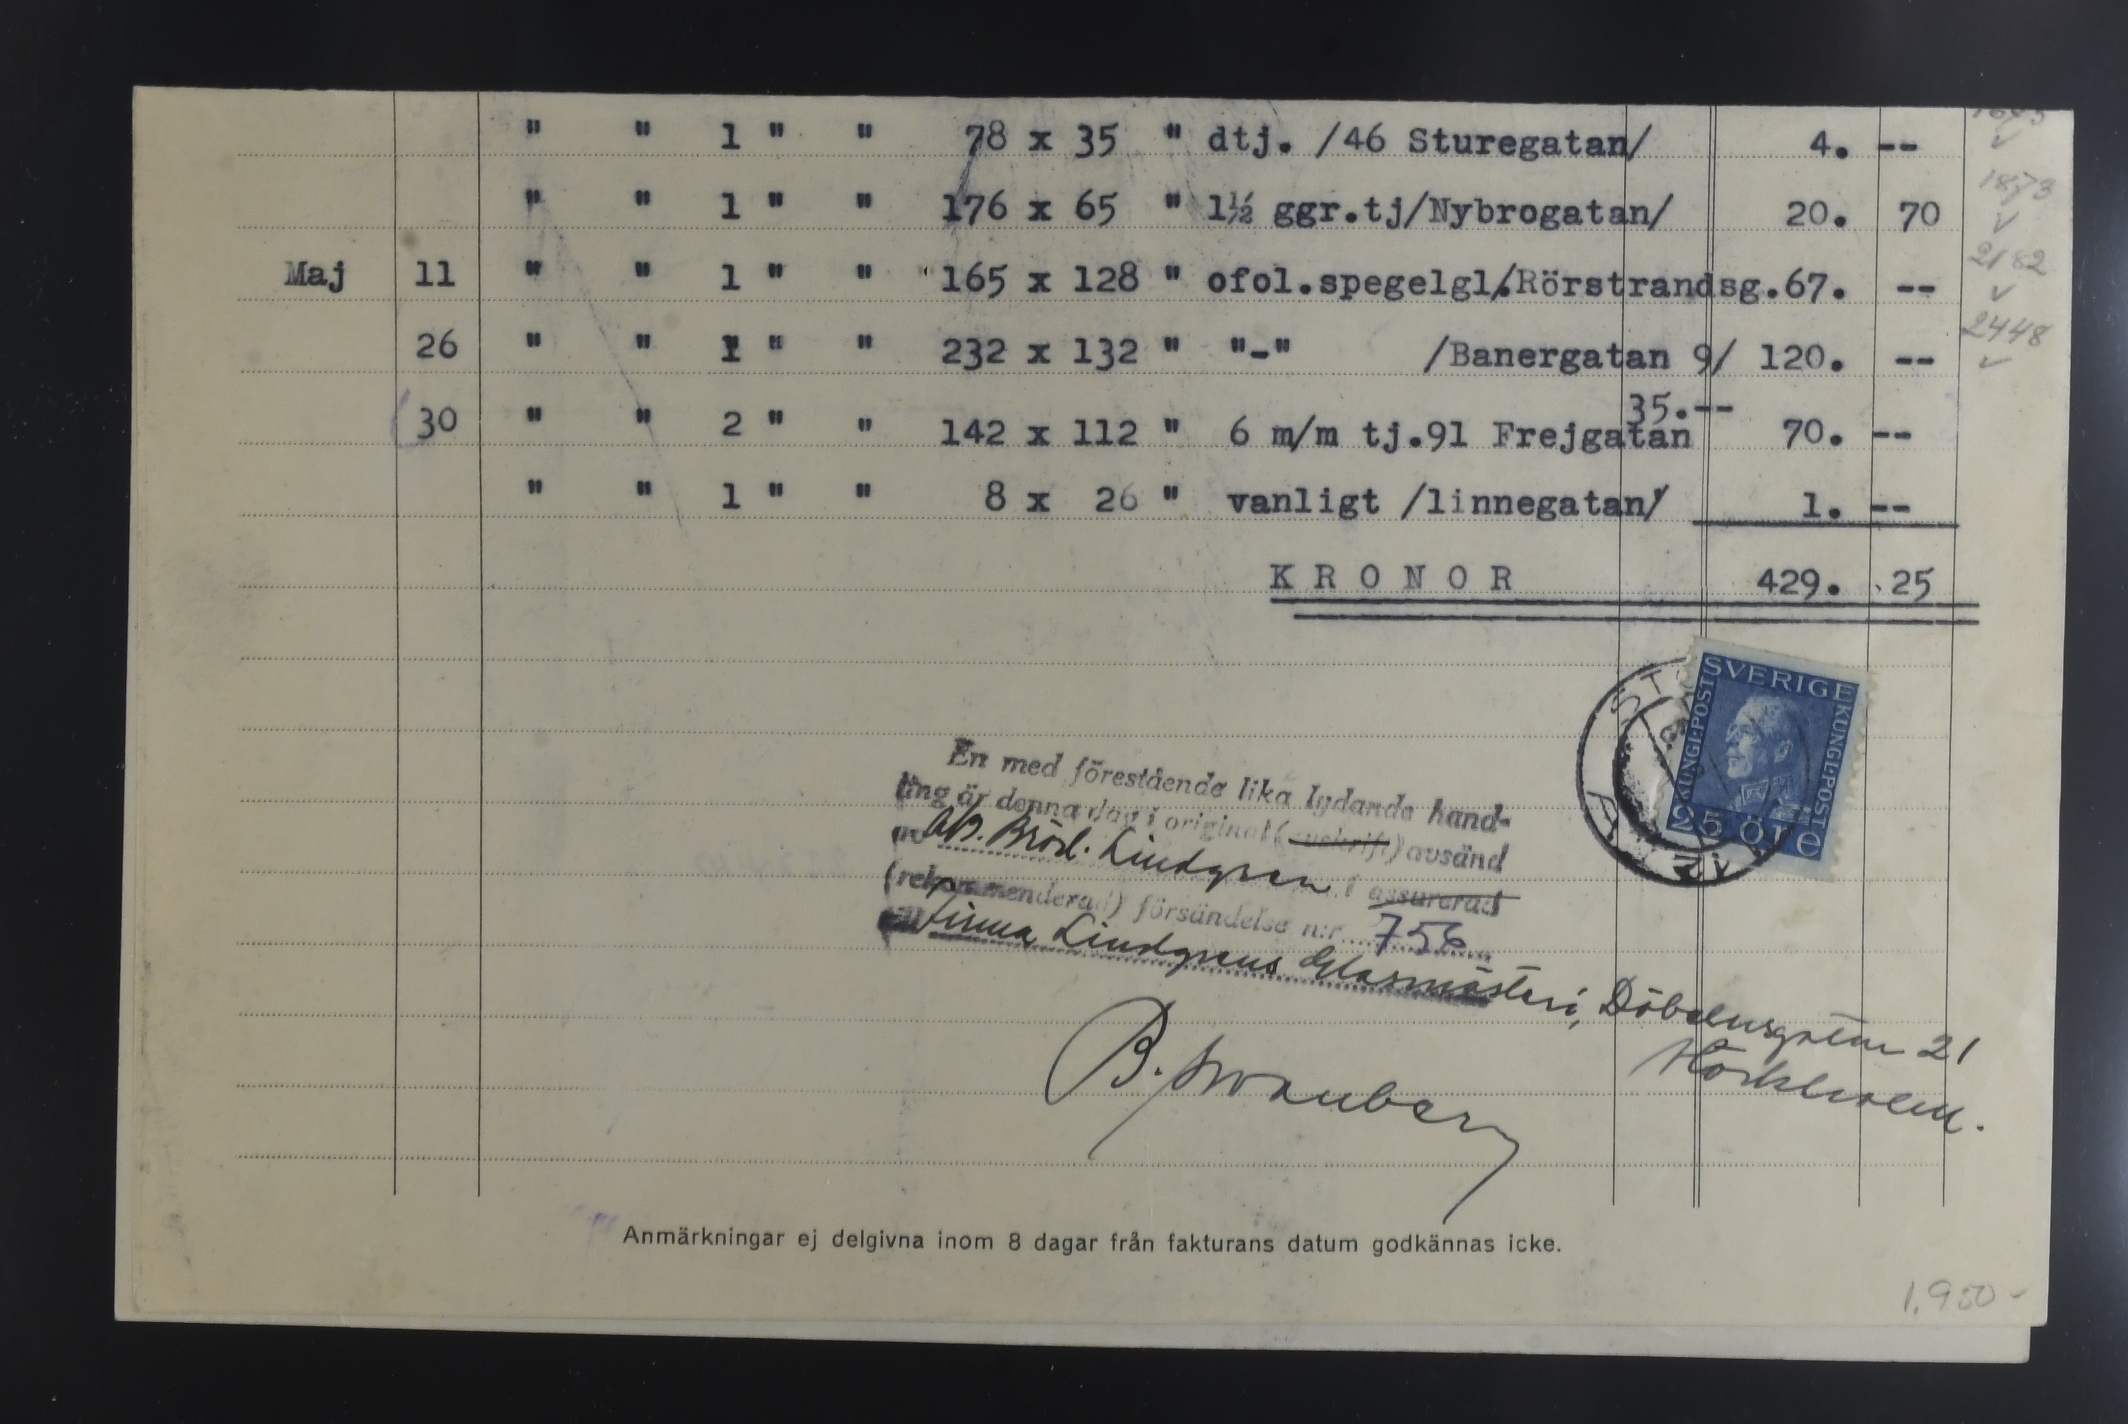 " " 1 " " 78 x 35 " dtj. /46 Sturegatan/ 4. --
1873
" " 1 " " 176 x 65 " 1½ ggr.tj/Nybrogatan/ 20. 70
2182
Maj 11 " " 1 " " 165 x 128 " ofol.spegelgl/.Rörstrandsg.67. --
2448
26 " " 1 " " 232 x 132 " "-" /Banergatan 9/ 120. --
35.--
30 " " 2 " " 142 x 112 " 6 m/m tj.91 Frejgatan 70. --
" " 1 " " 8 x 26 " vanligt /linnegatan/ 1. --
KRONOR 429. 25
SVERIGE
KUNGL·POST
KUNGL·POST
25 öre
En med förestående lika lydande hand-
ling är denna dag i original (avskrift) avsänd
av A/B. Bröd. Lindgren i assurerad
(rekommenderad) försändelse n:r 756
till Firma Lindgrens Glasmästeri, Döbelnsgatan 21
Stockholm.
B. Swanberg
Anmärkningar ej delgivna inom 8 dagar från fakturans datum godkännas icke.
1.900-